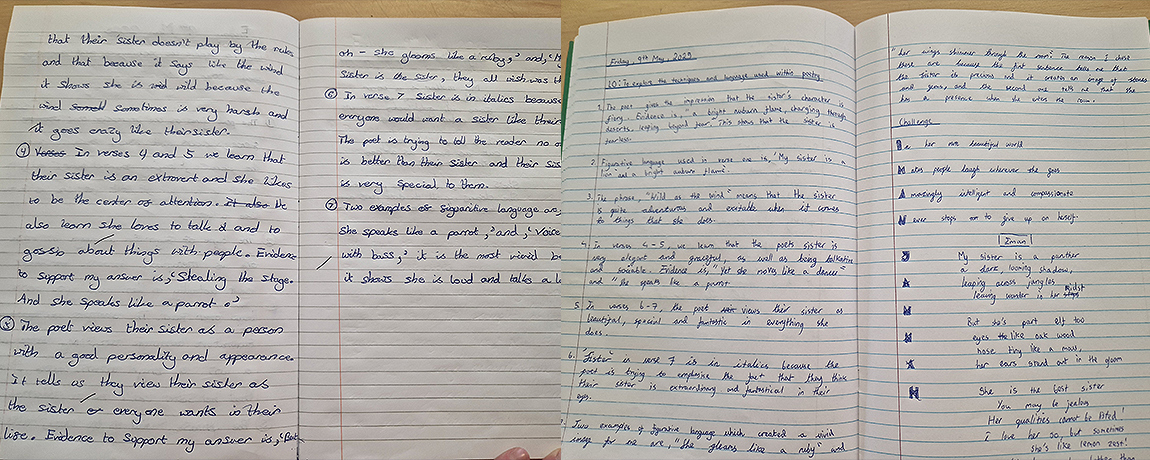 that their sister doesn't play by the rules
and that because it says like the wind
it shows she is wild because the
wind sometimes is very harsh and
it goes crazy like their sister.
④ In verses 4 and 5 we learn that
their sister is an extrovert and she likes
to be the center of attention. We
also learn she loves to talk and to
gossip about things with people. Evidence
to support my answer is, 'Stealing the stage.
And she speaks like a parrot.'
⑤ The poet views their sister as a person
with a good personality and appearance.
It tells us they view their sister as
the sister everyone wants in their
life. Evidence to support my answer is,
oh - she gleams like a ruby,' and,
sister is the sister, they all wish was
⑥ In verse 7 sister is in italics because
everyone would want a sister like their
The poet is trying to tell the reader no
is better than their sister and their sis
is very special to them.
⑦ Two examples of figuritive language are,
She speaks like a parrot,' and, 'Voice
with bass,' it is the most vivid be
it shows she is loud and talks a lo
Friday, 9th May,
LO: To explore the techniques and language used within poetry.
1. The poet gives the impression that the sister's character is
fiery. Evidence is, "a bright auburn flame, charging through
deserts, leaping beyond fear". This shows that the sister is
fearless.
2. Figurative language used in verse one is, "My sister is a
lion" and a bright auburn flame.
3. The phrase, "Wild as the wind" means that the sister
is quite adventurous and excitable when it comes
to things that she does.
4. In verses 4-5, we learn that the poets sister is
very elegant and graceful, as well as being talkative
and sociable. Evidence is, "Yet she moves like a dancer"
and "she speaks like a parrot.
5. In verses 6-7, the poet views their sister as
beautiful, special and fantastic in everything she
does.
6. "Sister" in verse 7 is in italics because the
poet is trying to emphasise the fact that they think
their sister is extraordinary and fantastical in their
eyes.
Two examples of figurative language which created a vivid
image for me are, "She gleams like a ruby" and
"her wings shimmer through the room". The reason I chose
these are because the first sentence tells me that
the sister is precious and it creates an image of stones
and gems, and the second one tells me that she
has a presence when she enters the room.
Challenge
In her own beautiful world
Makes people laugh wherever she goes
Amazingly intelligent and compassionate
Never stops on to give up on herself.
Iman
My sister is a panther
a dark, looming shadow,
leaping across jungles
leaving wonder in her midst
But she's part elf too
eyes like oak wood
nose tiny like a mouse,
her ears stand out in the gloom
She is the best sister
You may be jealous
Her qualities cannot be listed!
I love her so, but sometimes
she's like lemon zest!